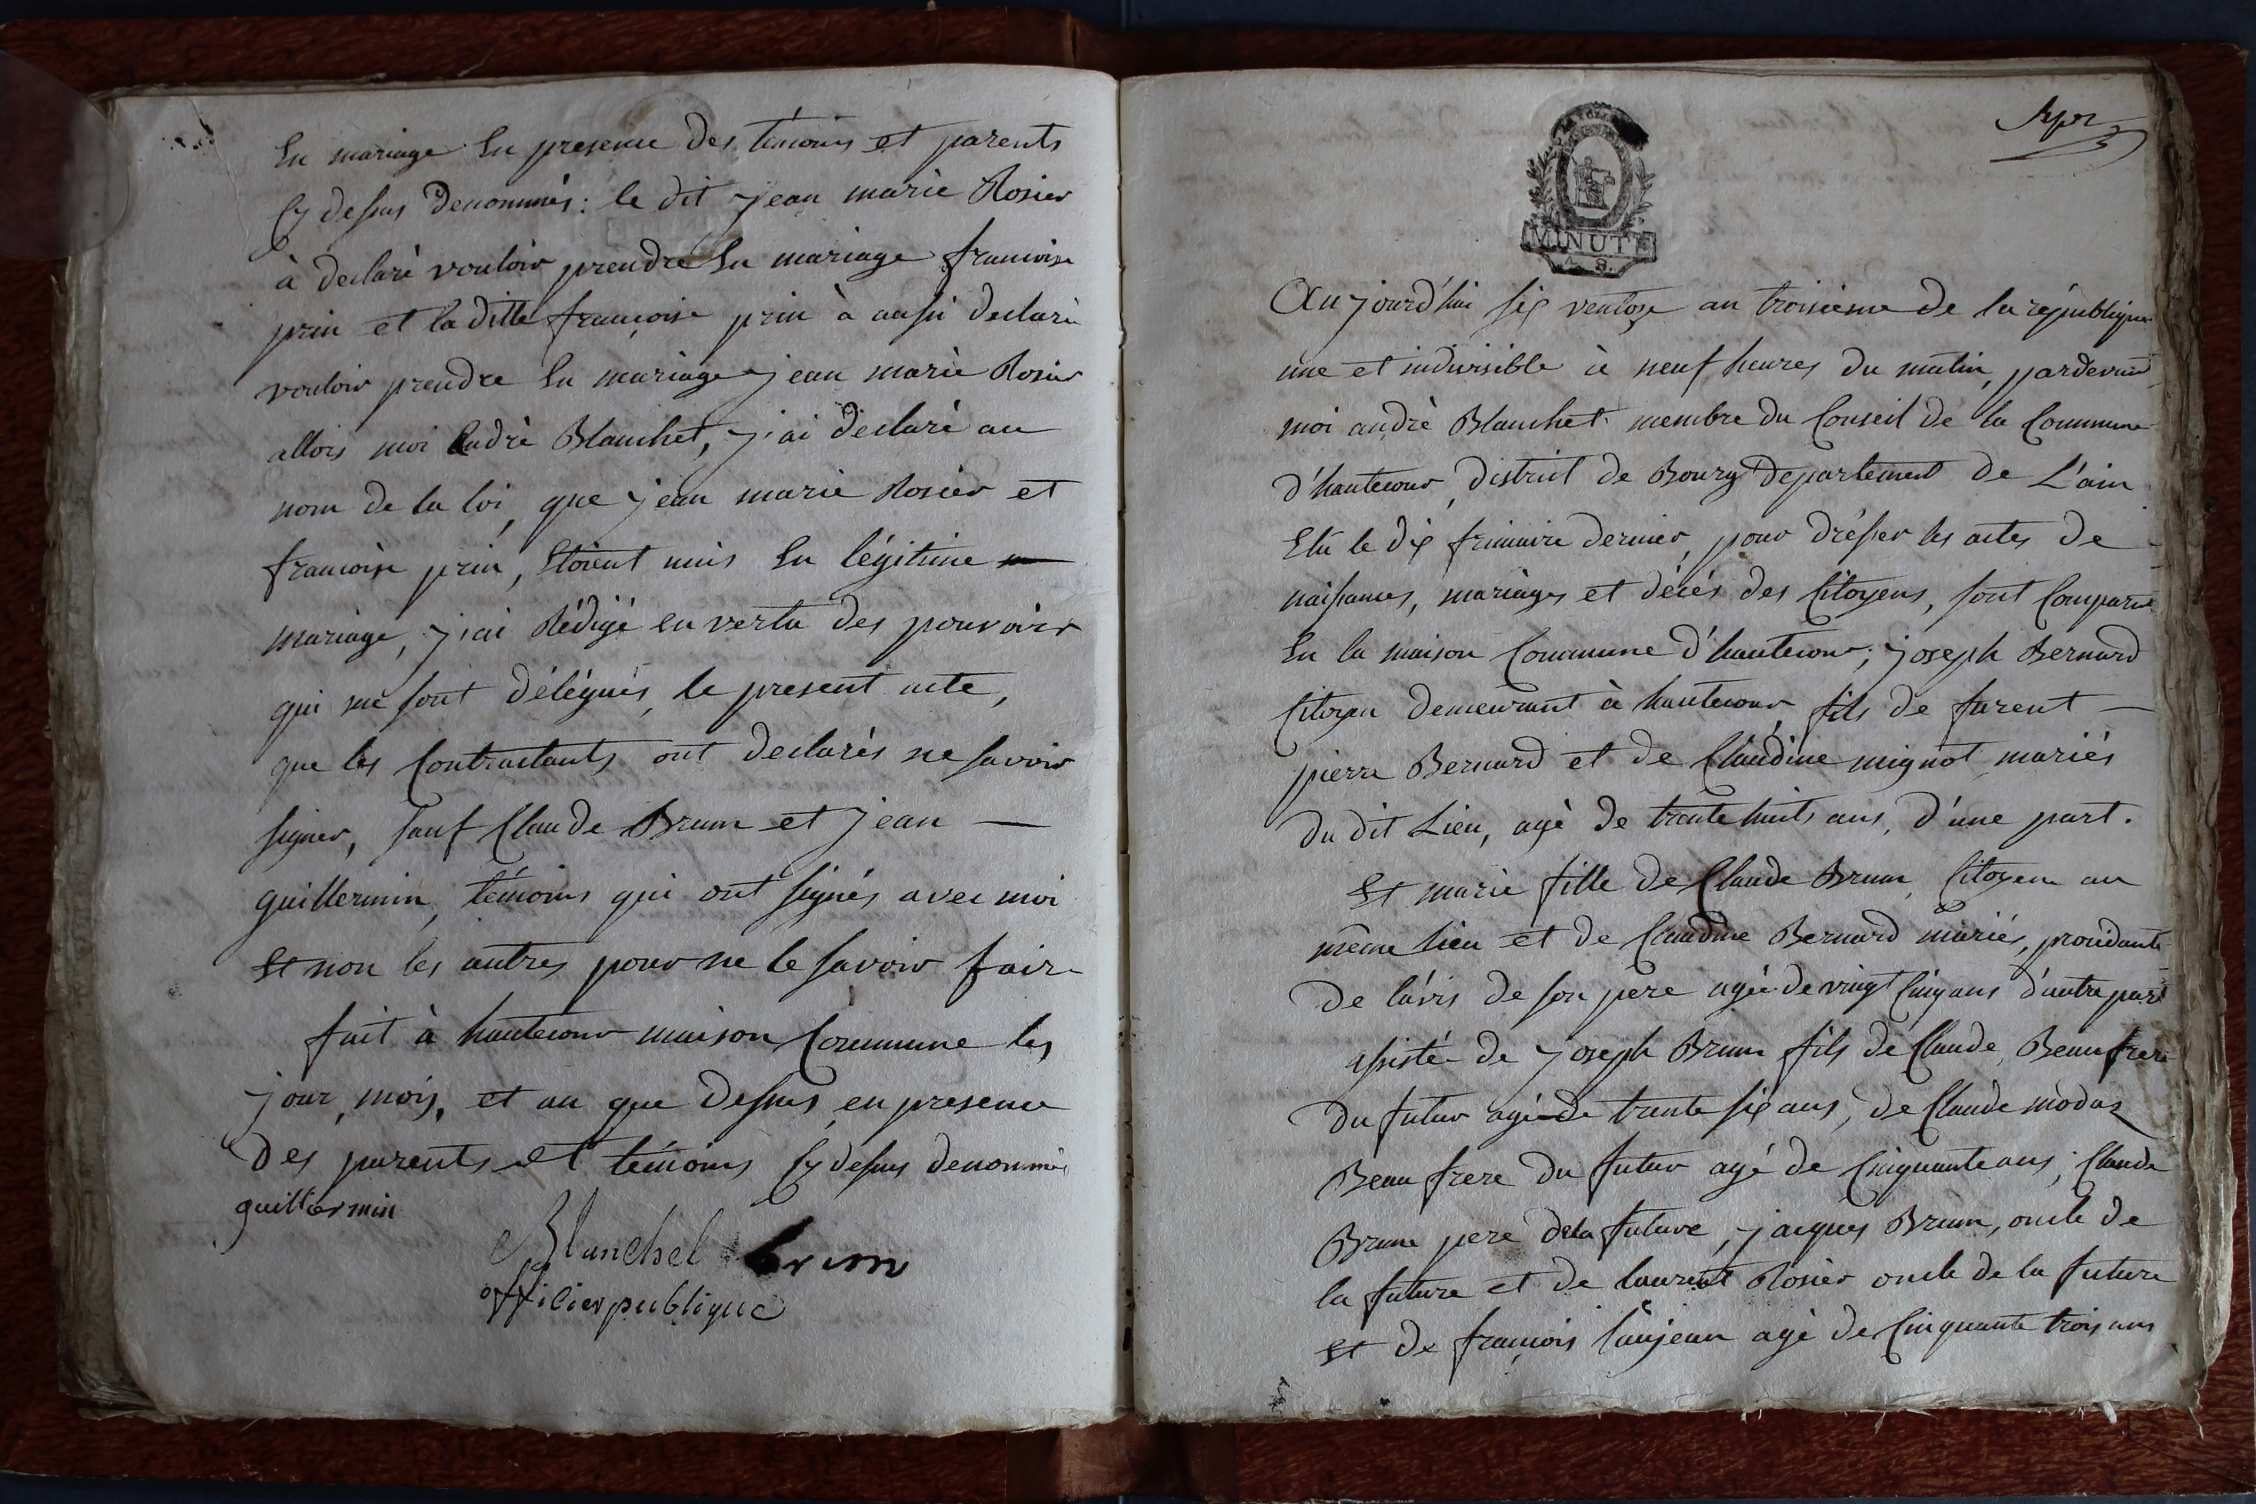 En mariage En presence des témoins et parents
Cy dessus denommés : le dit jean marie Rosier
à declaré vouloir prendre En mariage francoise
prin et la ditte francoise prin à aussi declaré
vouloir prendre En mariage jean marie Rosier
allors moi André Blanchet, j'ai declaré au
nom de la loi, que jean marie Rosier et
francoise prin, Etoient unis En légitime
mariage, j'ai Rédigé en vertu des pouvoirs
qui me sont délégués, le present acte,
que les Contractants ont declarés ne savoir
signer, sauf Claude Brun et jean —
guillermin, témoins qui ont signés avec moi
Et non les autres pour ne le savoir faire
fait à hautecour maison Commune les
jour, mois, et an que dessus, en presence
des parents et témoins Cy dessus denommés
guillermin
Blanchet brun
officier publique
MINUTE
Aujourd'hui six ventose an troisieme de la république
une et indivisible à neuf heures du matin, pardevant
moi andré Blanchet membre du Conseil de la Commune
d'hautecour, district de Bourg departement de L'ain
Elû le dix frimaire dernier, pour drésser les actes de
naissances, mariages et décés des Citoyens, sont Comparus
En la maison Commune d'hautecour; joseph Bernard
Citoyen demeurant à hautecour, fils de farent —
pierre Bernard et de Claudine mignot mariés
du dit Lieu, agé de trente huits ans, d'une part.
Et marie fille de Claude Brun, Citoyen au
même lieu et de Claudine Bernard mariés, procidante
de l'avis de son pere agée de vingt Cinq ans d'autre part
assistée de joseph Brun fils de Claude, Beaufrere
du futur agé de trente six ans, de Claude modas
Beau frere du futur agé de Cinquante ans; Claude
Brun pere dela future, jacques Brun, oncle de
la future et de laurent Rosier oncle de la future
Et de francois lanjean agé de Cinquante trois ans